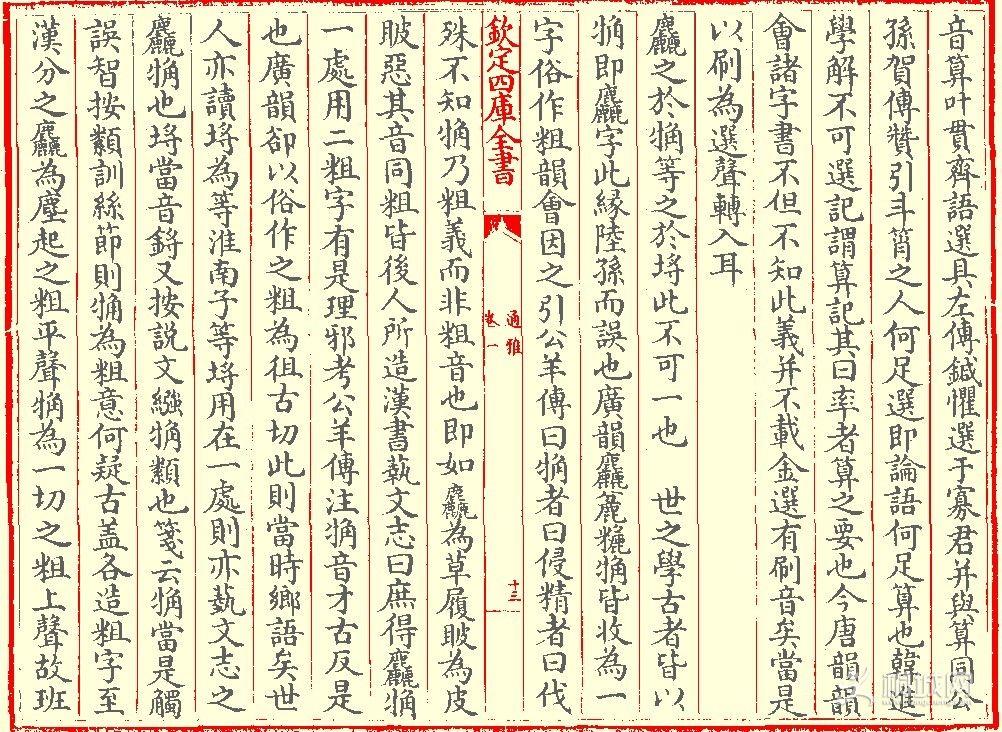 音算叶貫齊語選具左傳鍼懼選于寡君并與算同公
孫賀傳贊引斗筲之人何足選即論語何足算也韓進
學解不可選記謂算記其曰率者算之要也今唐韻韻
會諸字書不但不知此義并不載金選有刷音矣當是
以刷為選聲轉入耳
麤之於觕等之於埒此不可一也 世之學古者皆以
觕即麤字此縁陸孫而誤也廣韻麤麄觕皆收為一
字俗作粗韻會因之引公羊傳曰觕者曰侵精者曰伐
欽定四庫全書
通雅
卷一
十三
殊不知觕乃粗義而非粗音也即如麤為草履
為皮
惡其音同粗皆後人所造漢書蓺文志曰庶得麤觕
一處用二粗字有是理邪考公羊傳注觕音才古反是
也廣韻卻以俗作之粗為徂古切此則當時鄉語矣世
人亦讀埒為等淮南子等埒用在一處則亦蓺文志之
麤觕也埒當音鋝又按説文繦觕纇也箋云觕當是觸
誤智按纇訓絲節則觕為粗意何疑古盖各造粗字至
漢分之麤為塵起之粗平聲觕為一切之粗上聲故班